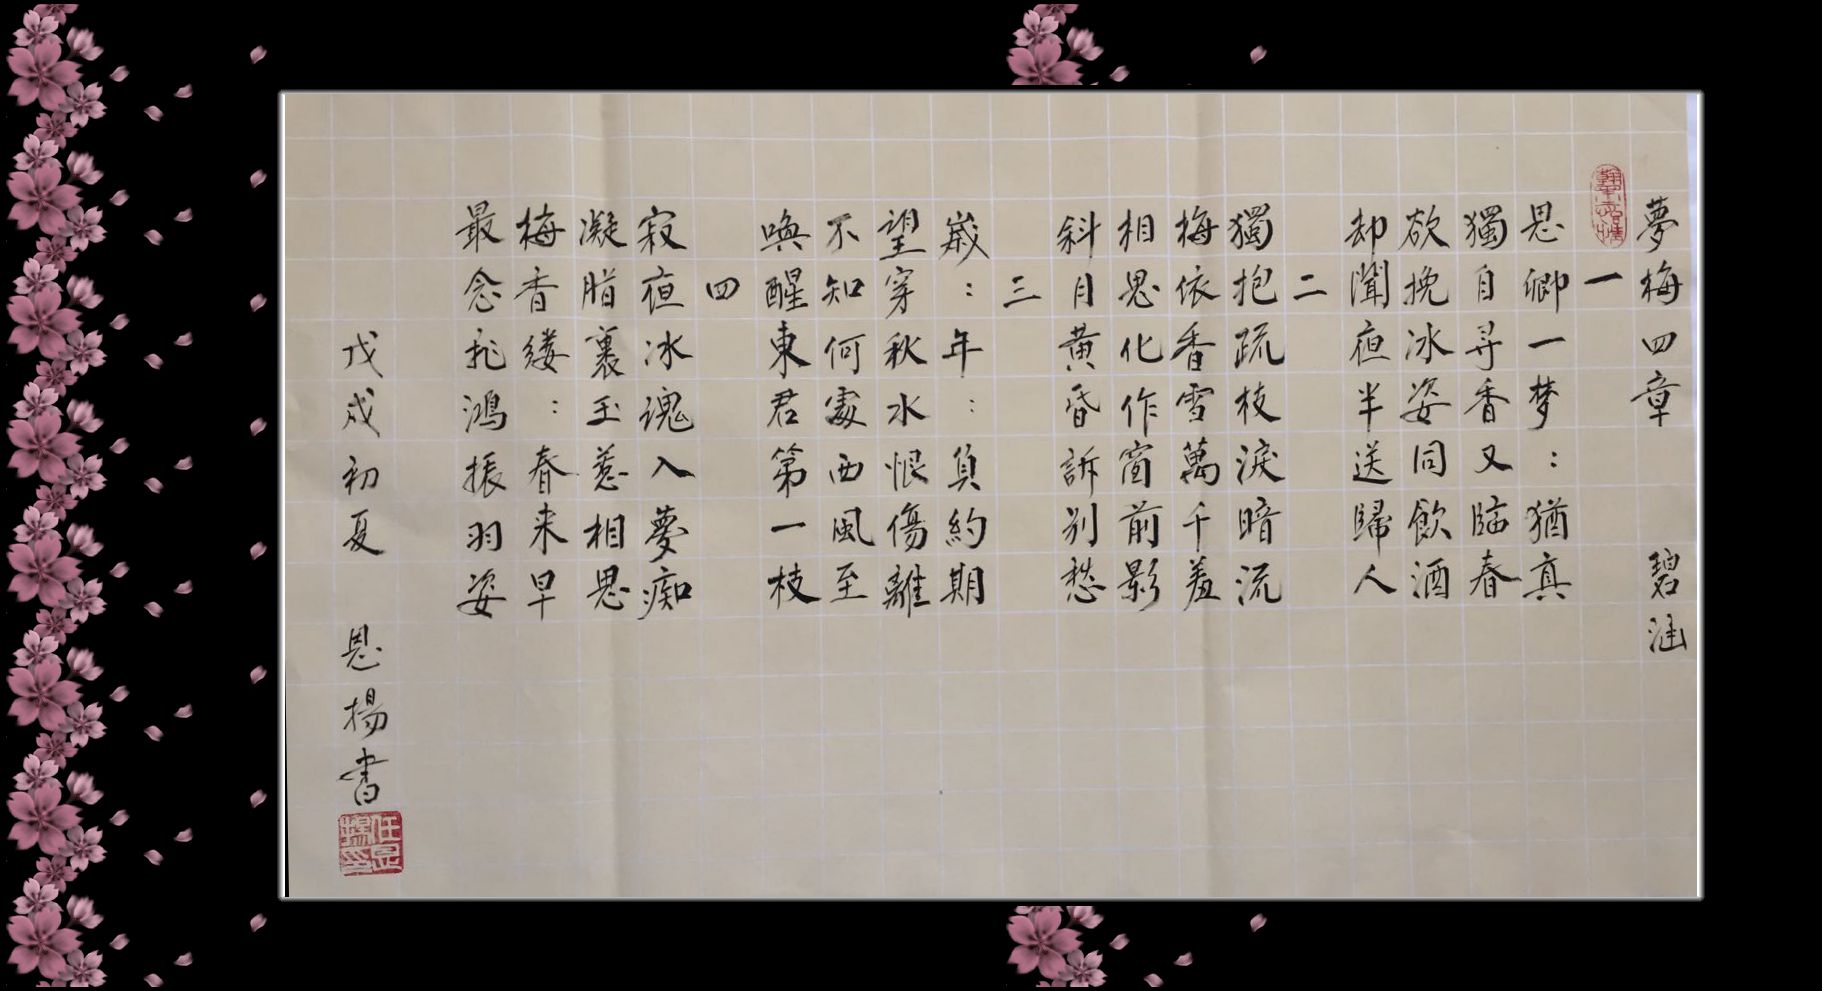 夢梅四章 碧涵
一
思卿一梦：猶真
獨自寻香又临春
欲挽冰姿同飲酒
却聞夜半送歸人
二
獨抱疏枝淚暗流
梅依香雪萬千羞
相思化作窗前影
斜月黄昏訴别愁
三
歲：年：負約期
望穿秋水恨傷離
不知何處西風至
喚醒東君第一枝
四
寂夜冰魂入夢痴
凝脂裹玉惹相思
梅香缕：春来早
最念飛鴻振羽姿
戊戌初夏 恩揚書
任恩揚印